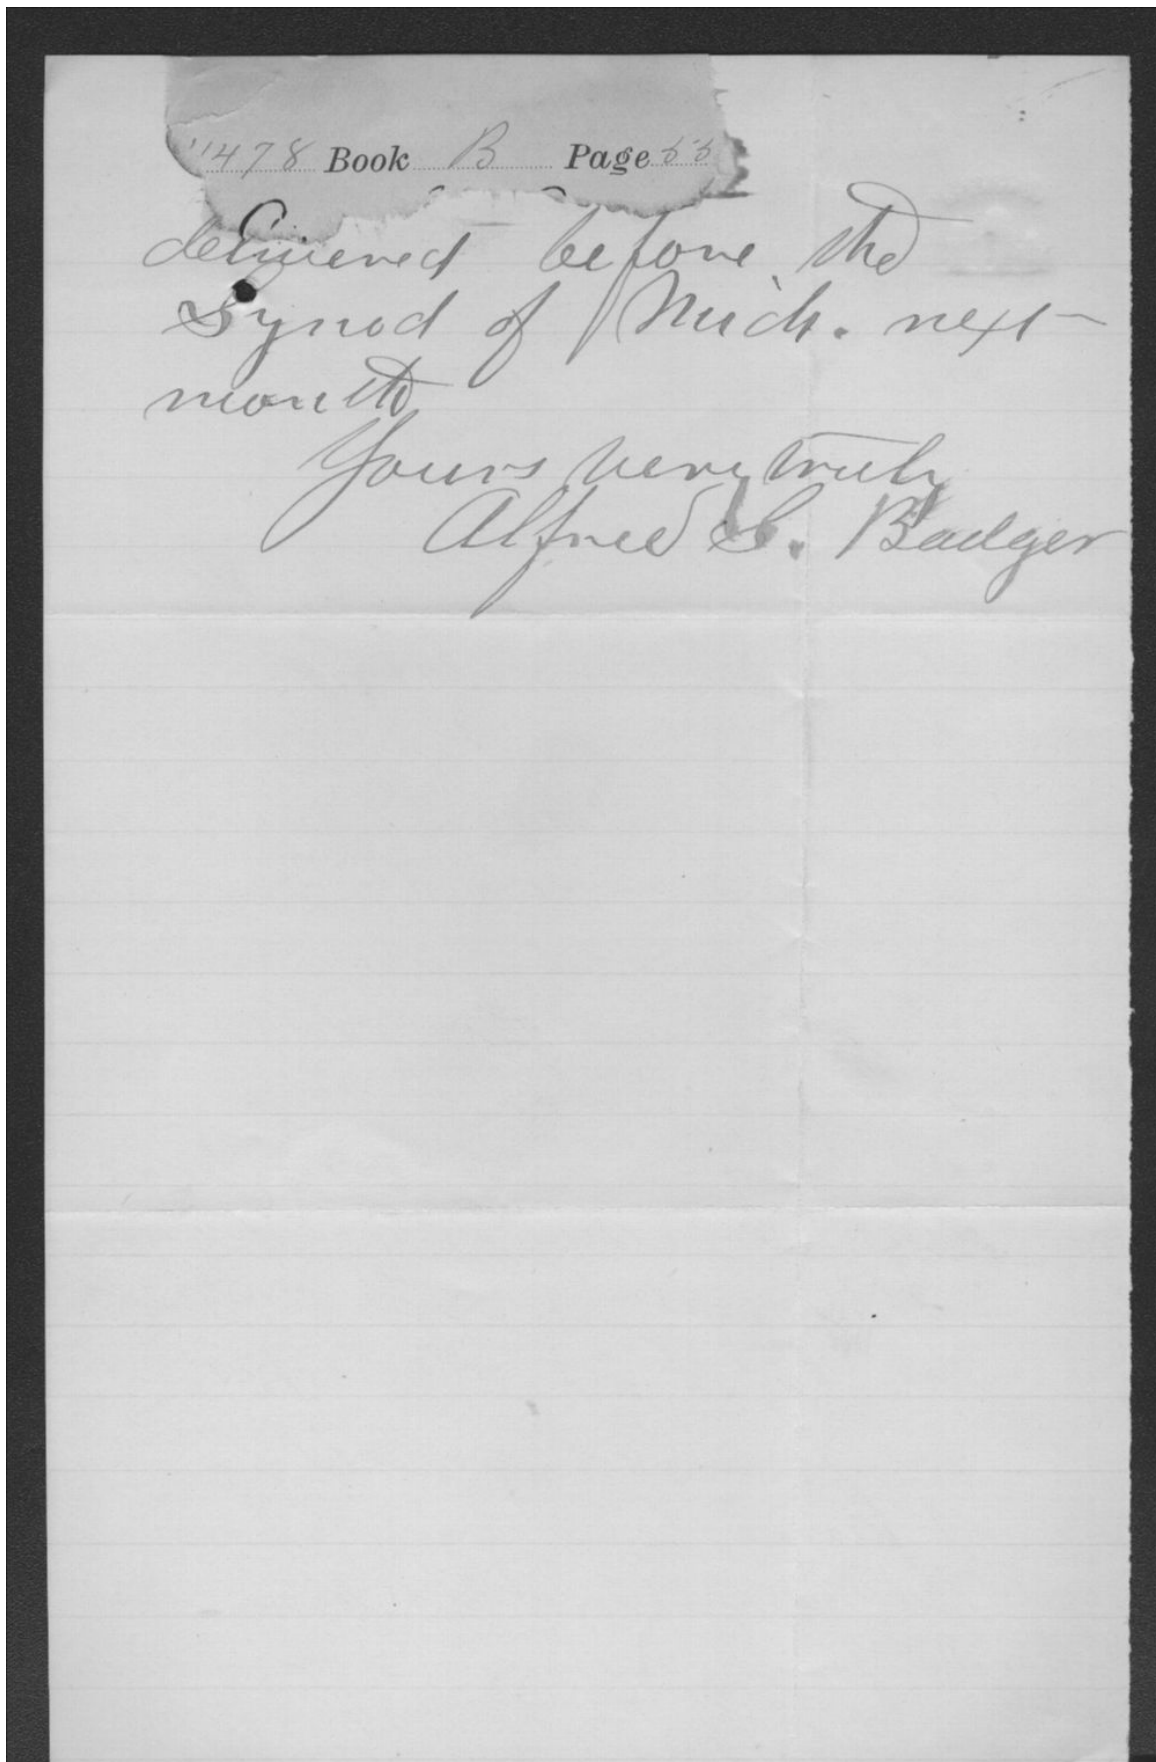 478 Book B Page 53
delivered before the
Synod of Mich. next
month
Yours very truly
Alfred S. Badger